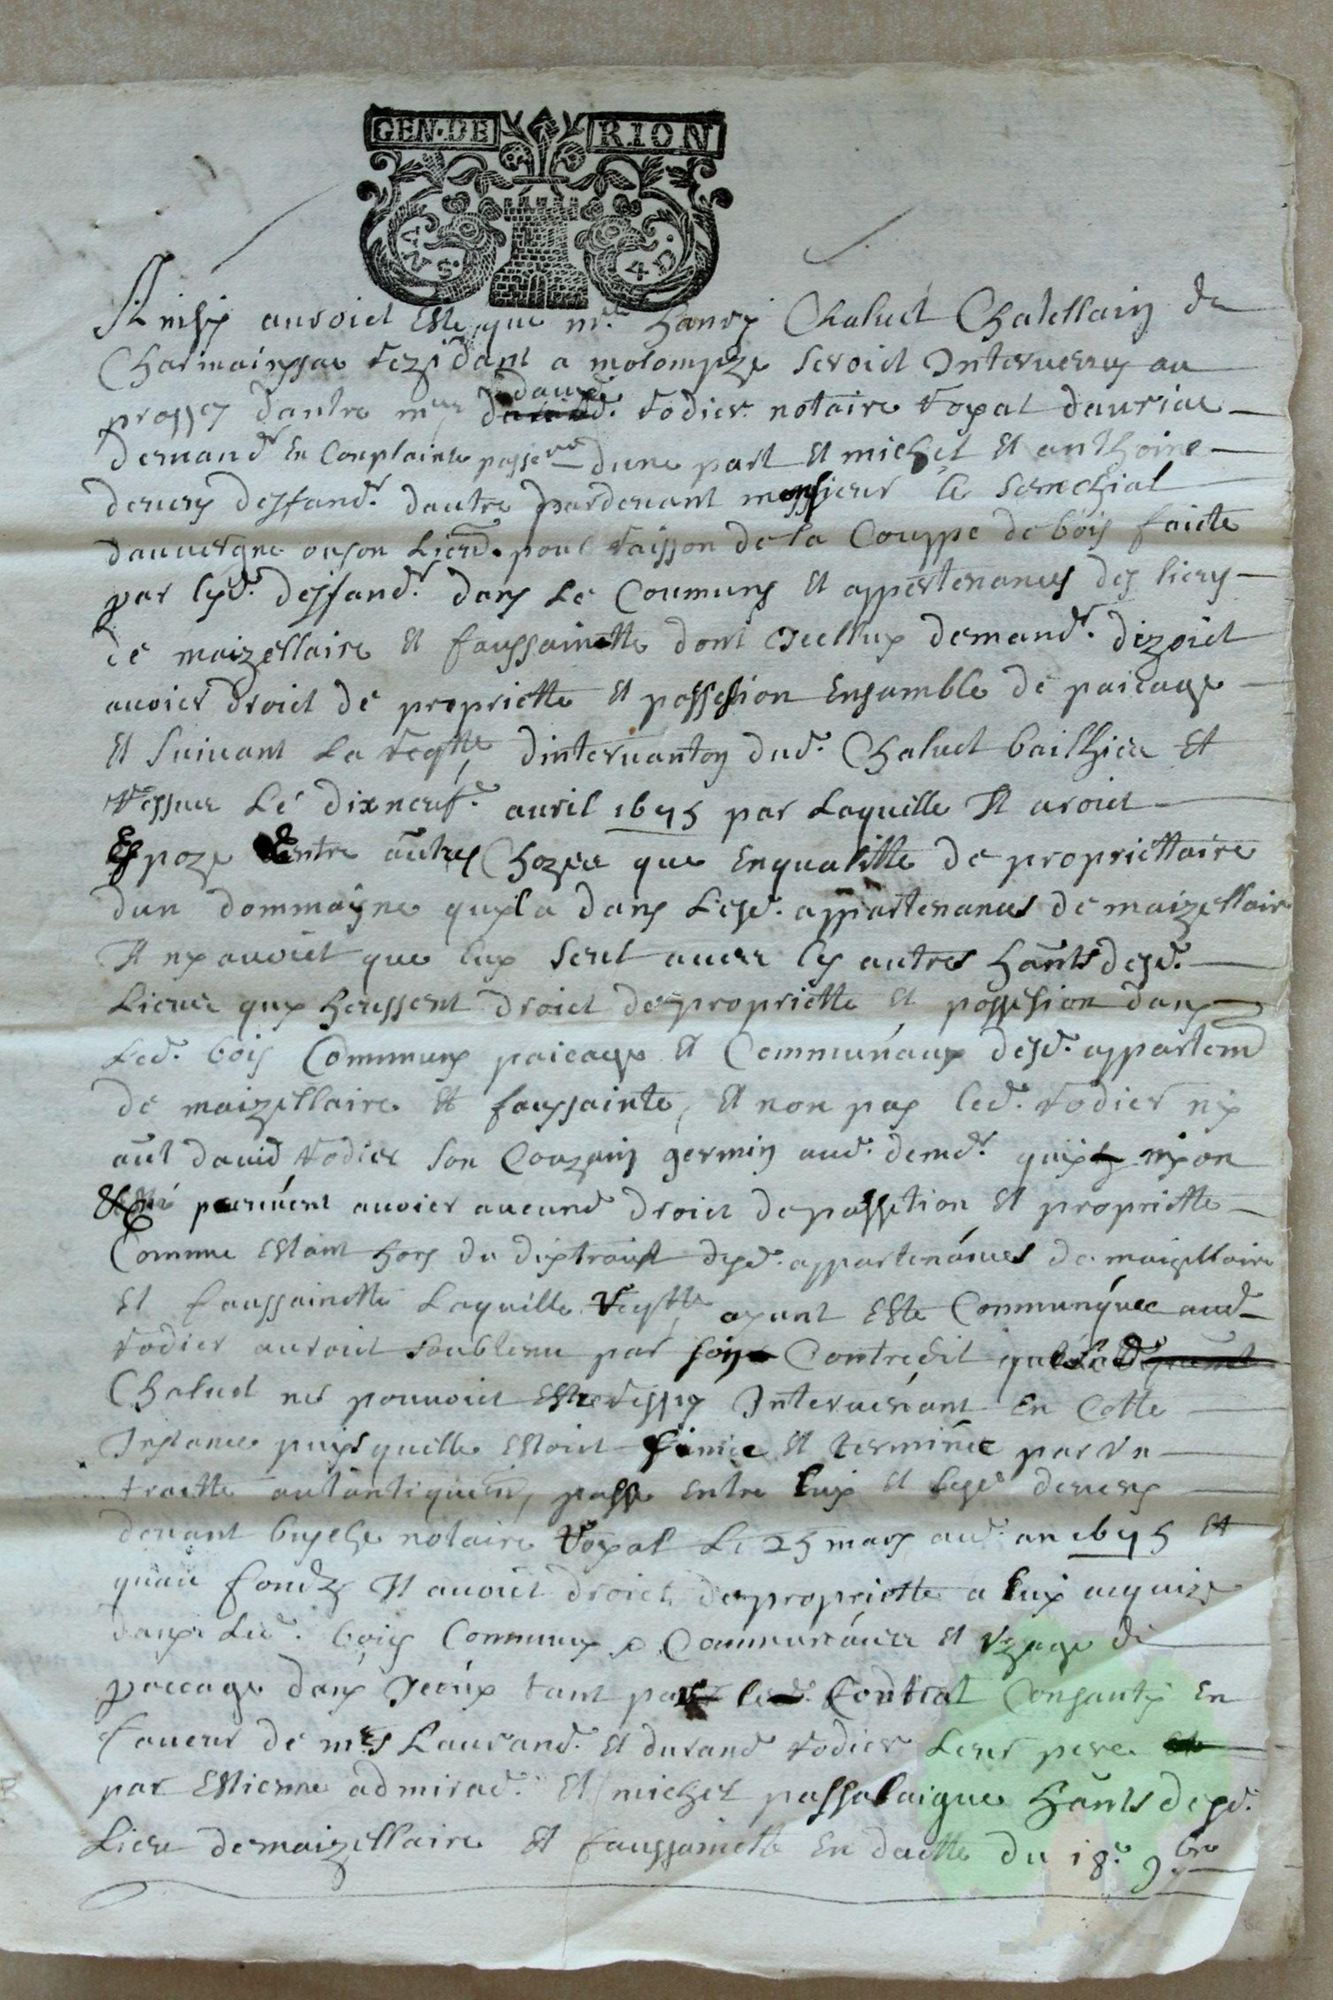 GEN·DE RION
VN S. 4 D.
Ainsy auroict esté que mre. Hanry Chalud Chatellain de
Charmainssac rezidant a molompze seroict Intervenus au
prosses dantre mre dauid
dauid. rodier notaire royal dauriac
demandr. En Complainte possere dune part et michel et anthoine
deuers deffandr. dautre pardeuant monsieur le senechial
dauuergne ou son Lieud. pour raisson de la Couppe de bois faicte
par lesd. deffandr. dans Le Coumuns et appertenances des lieus
de maizellaire et faussainette dont Jcelluy demandr. dizoict
auoier droict de propriette et possession Ensamble de paicage
Et suiuant La reqtte dinteruanton dud. Chalud bailhiee et
Le dixneuf.e auril 1675 par Laquille Il auroict
Expoze Entre autres Chozee que En qualitte de propriettaire
dun dommayne quyla dans Lesd. appartenances de maizellaire
Il ny auoict que luy seul auec les autres hants desd.
Lieux quy heussent droict de propriette et possesion dans
Led. bois Communs paicage et Communaux desd. appartend
de maizellaire et faussainte, et non pas led. rodier ny
aut dauid rodier son Couzain germin aud. demdr. quy ny on
peuuent auoier aucund droict de possetion et propriette
Comme estant hors du dixtraict desd. appartenances de maizellaire
Et faussainette Laquille reqtte ayant este Communiquee aud
rodier auroict soubtenu par son Contredit que led
Chalud ne pouuoict estre ressus Interuenant En Cette
Instance puis quelle estoict finie et terminée par vn
traitte autantique, passe entre luy et lesd deuers
deuant notaire royal Le 25 mars aud. an 1675 et
quau fondz Il auoict droict de propriette a luy acquize
dans Led. bois Communs et Communaux et vzage de
paccage dans Jceux tant par led. Contrat Consanty En
faueur de mes Laurand. et durand rodier Leur pere
par Estienne admirad. et michel passalaigue hants desd.
Lieu de maizellaire et faussainette En datte du 18.e 9bre